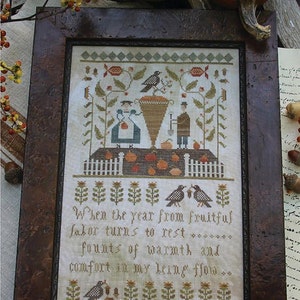 When the year from fruitful
labor turns to rest ......
founts of warmth and
comfort in my being flow ..